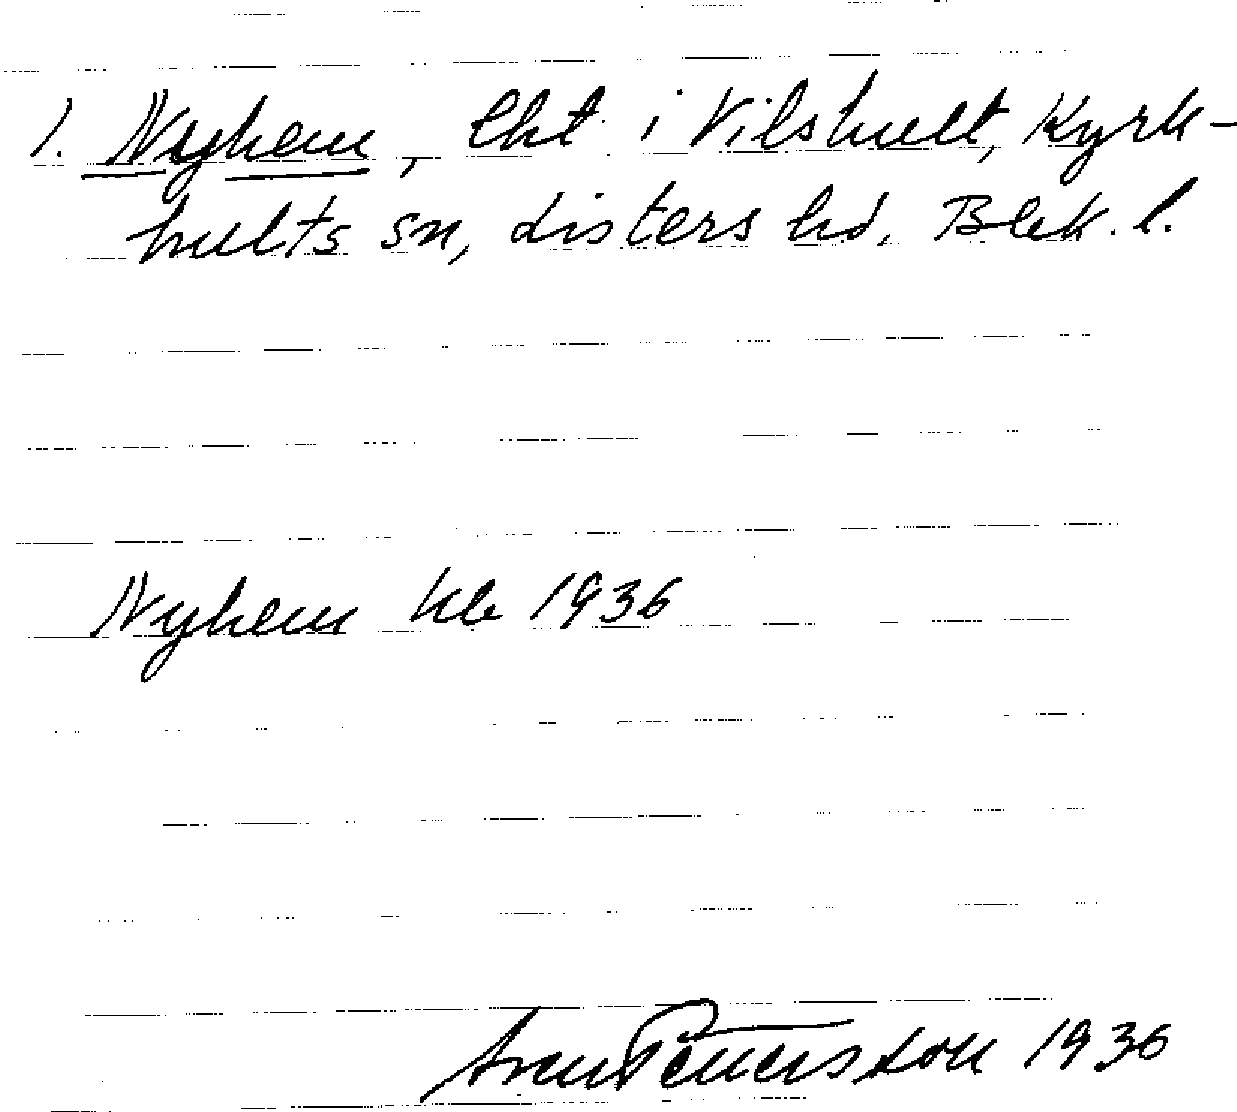 1. Nyhem, lht i Vilshult, Kyrk-
hults sn, Listers hd, Blek. l.
Nyhem hb 1936
Pettersson 1936